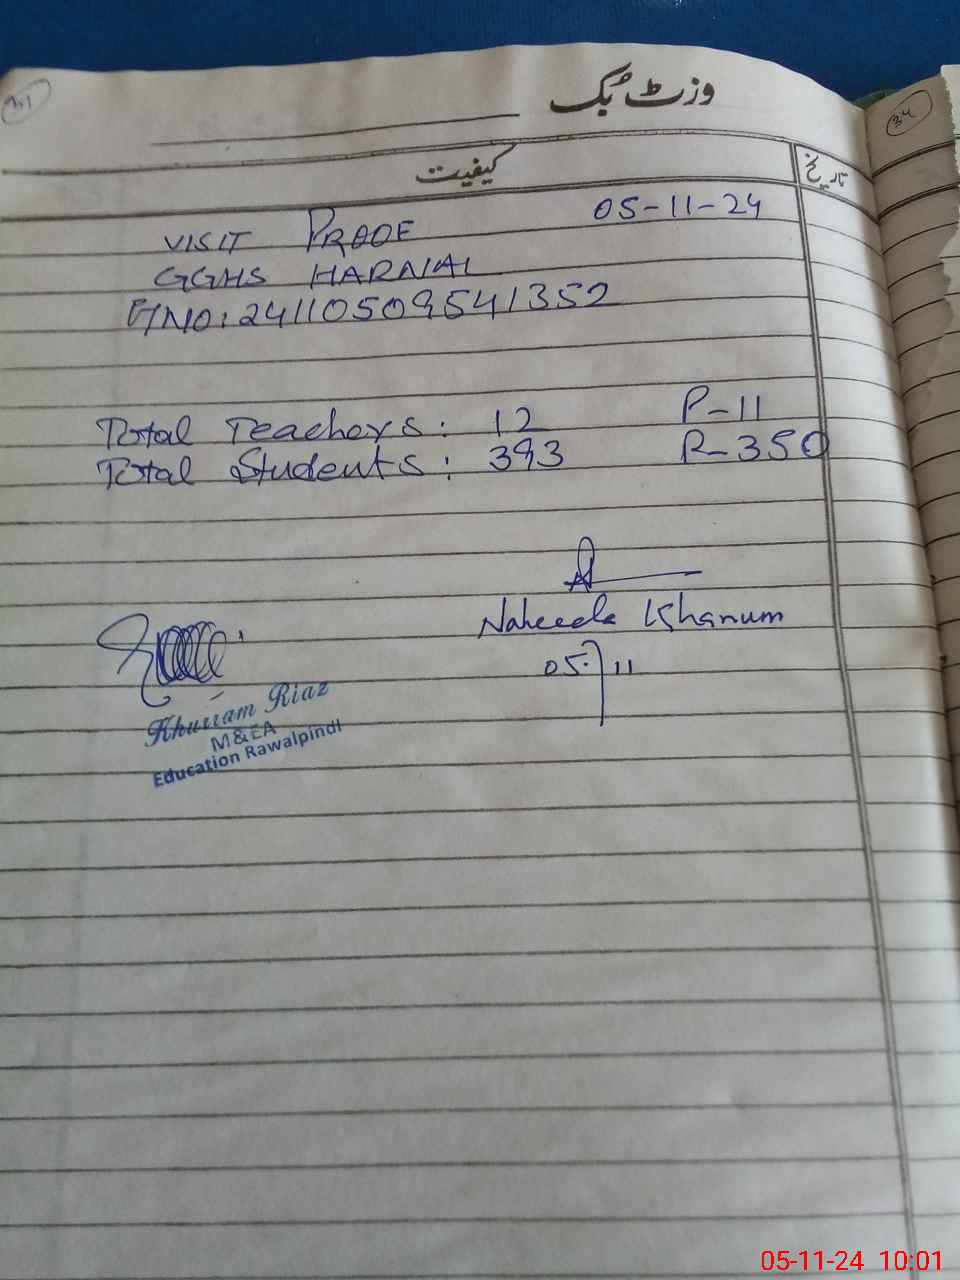 وزٹ بُک
کیفیت
تاریخ
34
VISIT PROOF 05-11-24
GGHS HARNAL
NO: 24110509541352
Total Teachers: 12 P-11
Total Students: 393 P-350
Naheeda Khanum
05/11
Khurram Riaz
M&EA
Education Rawalpindi
05-11-24 10:01